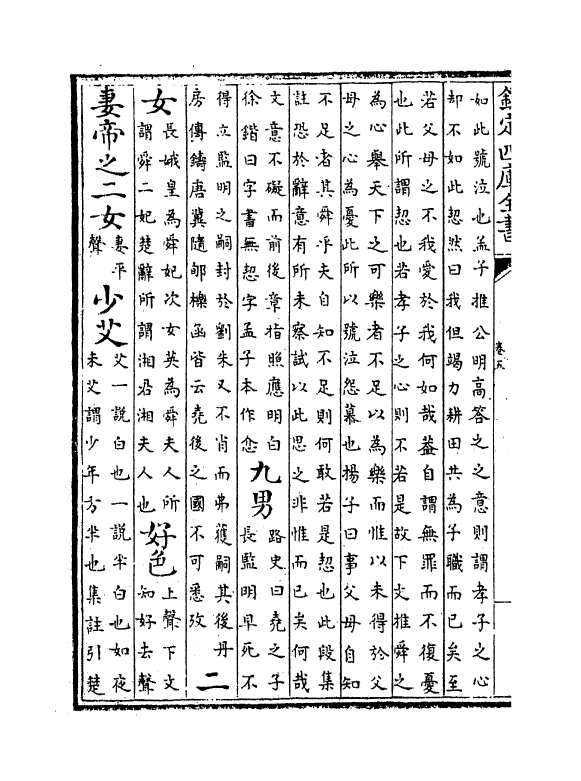 欽定四庫全書
卷五
如此號泣也孟子推公明高答之之意則謂孝子之心
却不如此恝然曰我但竭力耕田共為子職而已矣至
若父母之不我愛於我何如哉葢自謂無罪而不復憂
也此所謂恝也若孝子之心則不若是故下文推舜之
為心舉天下之可樂者不足以為樂而惟以未得於父
母之心為憂此所以號泣怨慕也楊子曰事父母自知
不足者其舜乎夫自知不足則何敢若是恝也此段集
註恐於辭意有所未察試以此思之非惟而已矣何哉
文意不礙而前後章指照應明白
徐鍇曰字書無恝字孟子本作忿
九男
路史曰堯之子
長監明早死不
得立監明之嗣封於劉朱又不肖而弗獲嗣其後丹
房傳鑄唐冀隨郇櫟函皆云堯後之國不可悉攷
二
女
長娥皇為舜妃次女英為舜夫人所
謂舜二妃楚辭所謂湘君湘夫人也
好色
上聲下文
知好去聲
妻帝之二女
妻平
聲
少艾
艾一說白也一說半白也如夜
未艾謂少年方半也集註引楚